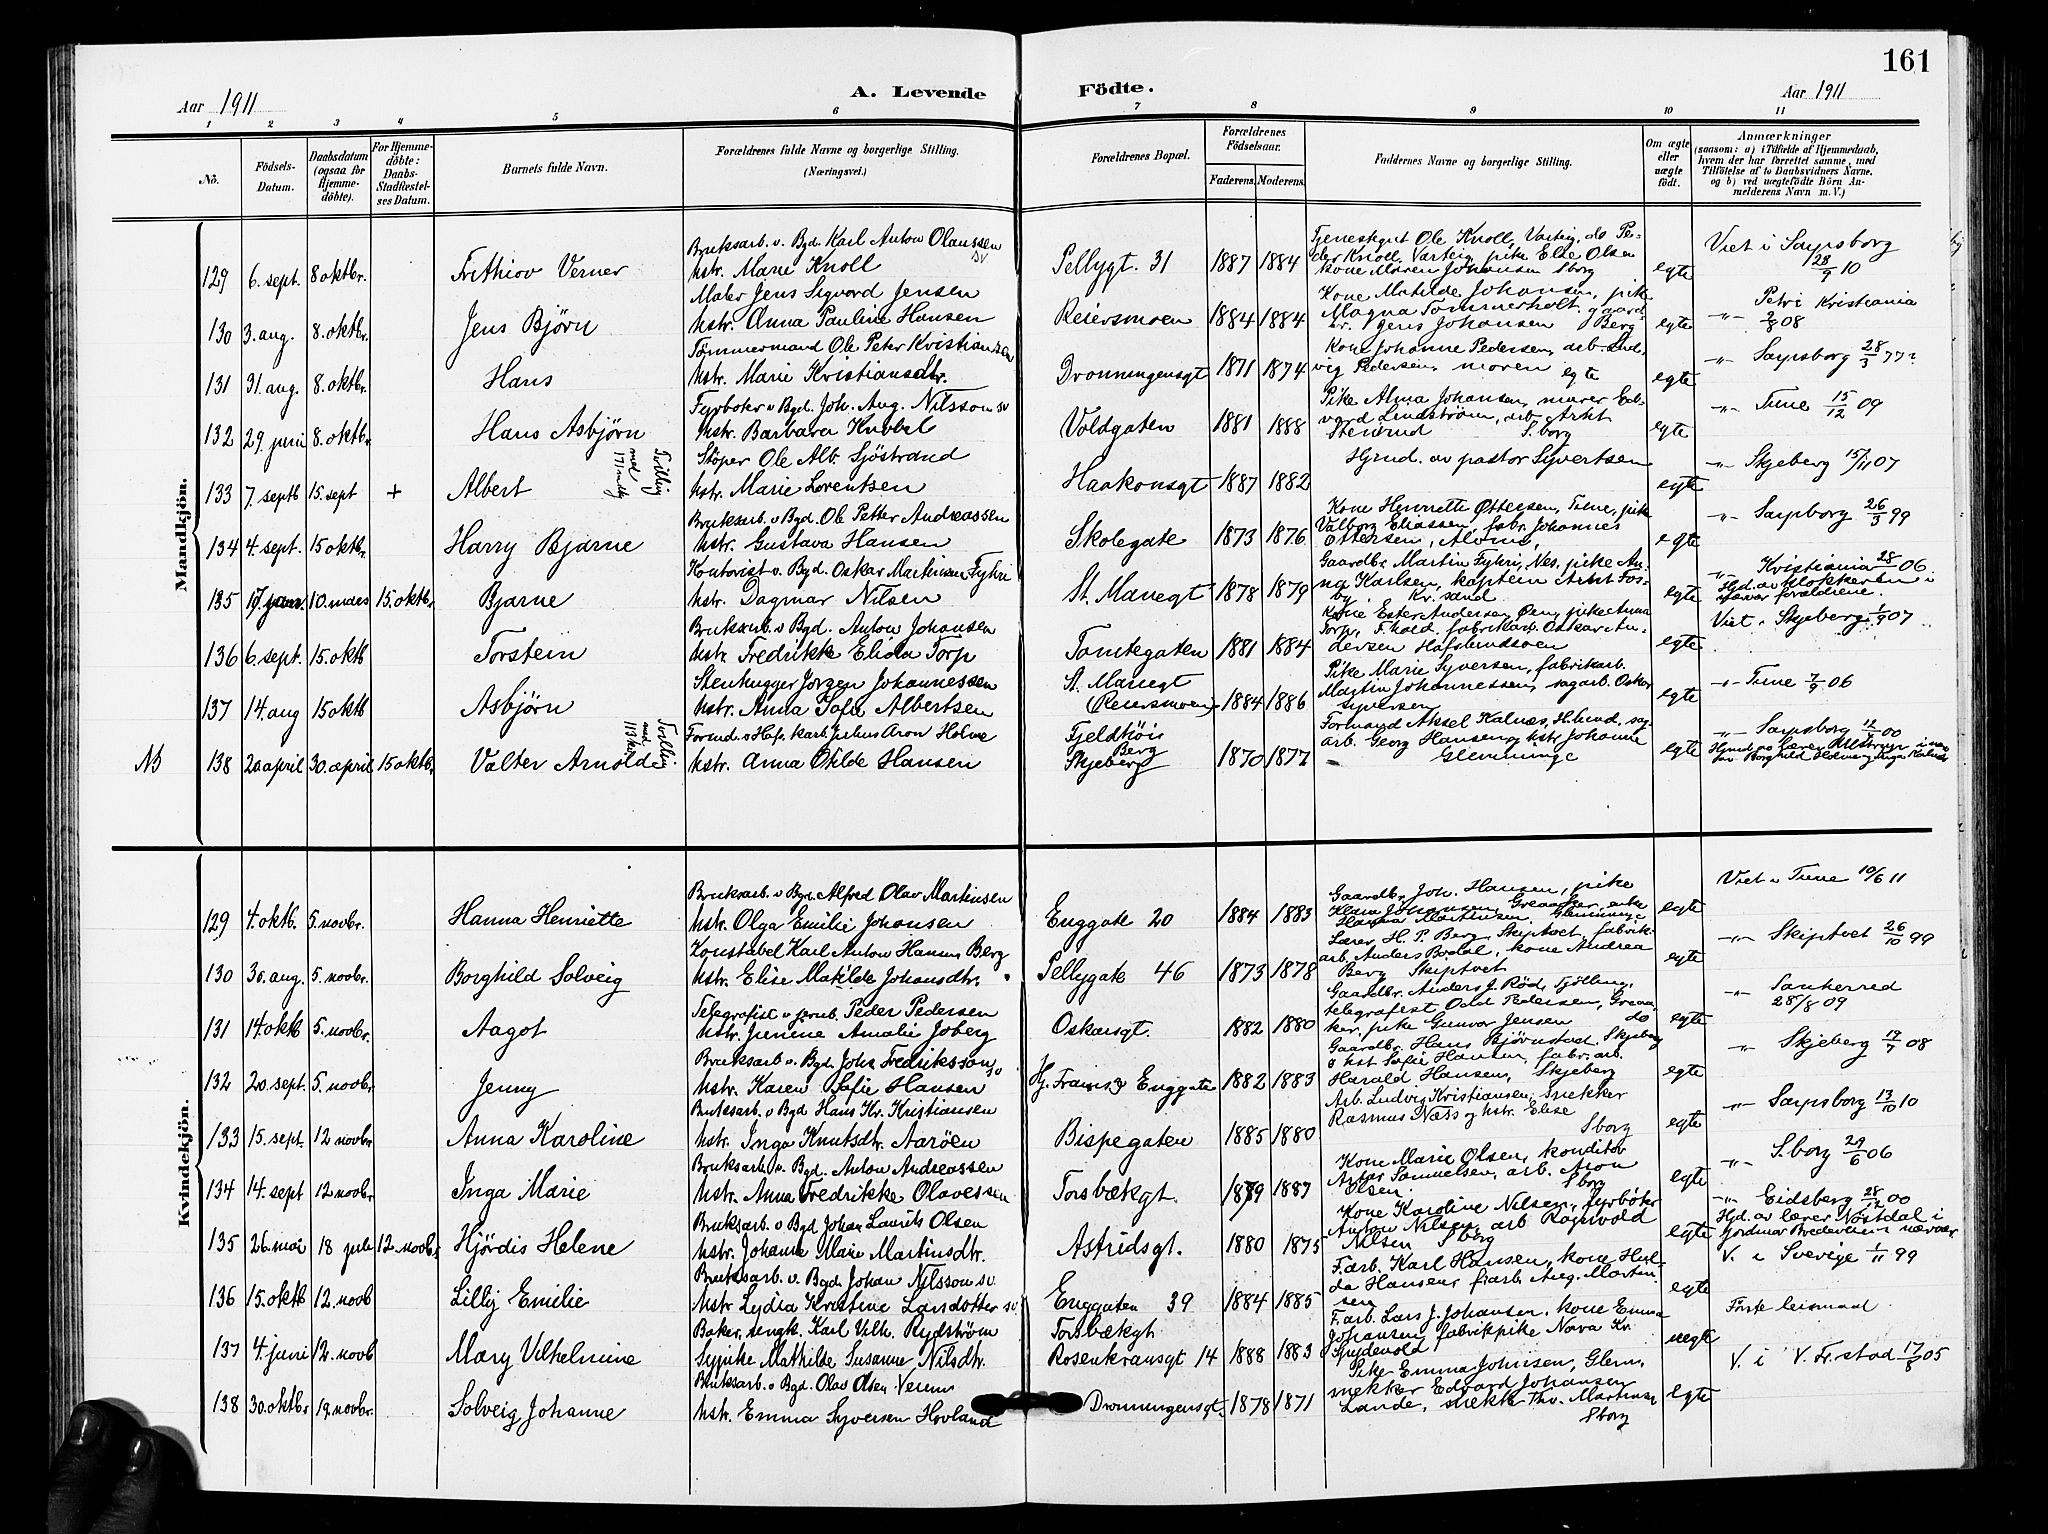 161
Aar 1911
A. Levende Födte.
Aar 1911
1 2 3 4 5 6 7 8 9 10 11
No.
Födsels-Datum.
Daabsdatum (ogsaa for Hjemme-döbte).
For Hjemme-döbte: Daabs-Stadfæstel-ses Datum.
Barnets fulde Navn.
Forældrenes fulde Navne og borgerlige Stilling. (Næringsvei.)
Forældrenes Bopæl.
Forældrenes Födselsaar.
Faderens. Moderens.
Faddernes Navne og borgerlige Stilling.
Om ægte eller uægte født.
Anmærkninger
(saasom: a) i Tilfælde af Hjemmedaab, hvem der har forrettet samme, med Tilföielse af to Daabsvidners Navne, og b) ved uægtefödte Börn An-melderens Navn m. V.)
Mandkjön.
129 6. sept. 8 oktbr. Frithiov Verner
Bruksarb. v. Bgd. Karl Anton Olaussen sv
hstr. Marie Knoll
Pellygt. 31 1887 1884
Tjenestgut Ole Knoll, Varteig, do Pe-
der Knoll, Varteig, pike Elde Olsen
kone Maren Johansen Sborg
egte
Viet i Sarpsborg 28/9 10
130 3. aug. 8. oktbr. Jens Bjørn
Maler Jens Sigvard Jensen
hstr. Anna Pauline Hansen
Reiersmoen 1884 1884
Kone Matilde Johansen, pike
Magna Tommerholt. gaard-
br. Jens Johansen Berg
egte
-"- Petri Kristiania 2/8 08
131 31. aug. 8. oktbr. Hans
Tømmermand Ole Peter Kristiansen
hstr. Marie Kristiansdtr.
Dronningensgt 1871 1874
Kone Johanne Pedersen, arb. Lud-
vig Pedersen, moren egte
egte
-"- Sarpsborg 28/3 77?
132 29. juni 8. oktbr. Hans Asbjørn
Fyrbøter v Bgd. Joh. Aug. Nilsson sv
hstr. Barbara Knobel
Voldgaten 1881 1888
Pike Alma Johansen, murer Ed-
vard Lindstrøm, arb. Arht
Stenerud S.borg
egte
-"- Tune 15/12 09
133 7. septb 15. sept + Albert
Tvilling med 171 nedf
Støper Ole Alb. Sjöstrand
hstr. Marie Lorentsen
Haakonsgt 1887 1882
Hjmd. av pastor Syvertsen
egte
-"- Skjeberg 15/11 07
134 4. sept. 15 oktbr. Harry Bjarne
Bruksarb. v. Bgd. Ole Petter Andreassen
hstr. Gustava Hansen
Skolegate 1873 1876
Kone Henriette Ottersen, Tune, pike
Valborg Eliassen, fabr. Johannes
Ottersen, Alvim
egte
-"- Sarpsborg 26/3 99
135 17 januar. 10. mars 15. oktbr. Bjarne
Kontorist v. Bgd. Oskar Martinsen Fyhri
hstr. Dagmar Nilsen
St. Mariegt 1878 1879
Gaardbr. Martin Fyhri, Nes, pike An-
na Karlsen, kaptein Arht Fos-
by, Kr.sand
egte
-"- Kristiania 28/ 06
Hjd. av klokkeren i nærvær forældrene.
136 6. sept. 15. oktb Torstein
Bruksarb. v Bgd. Anton Johansen
hstr. Fredrikke Elida Torp
Tomtegaten 1881 1884
Kone Ester Andersen Øen, pike Anna
Torp, F.hald, fabrikarb. Oskar An-
dersen Hafslundsøen
egte
Viet i Skjeberg 1/9 07
137 14. aug 15 oktb Asbjørn
Stenhugger Jørgen Johannessen
hstr. Anna Sofie Albertsen
St. Mariegt (Reiersmoen) 1884 1886
Pike Marie Syversen, fabrikarb.
Martin Johannessen, sagarb. Oskar
Syversen
egte
-"- Tune 7/9 06
NB 138 20 april 30. april 15 oktbr. Valter Arnold
Tvilling med 119 kvk.
Formd. v Hafs. karb. Julius Aron Holme
hstr. Anna Otilde Hansen
Fjeldhøis Berg Skjeberg 1870 1877
Formand Aksel Kalnæs, H.lund, sag-
arb. Georg Hansen, hstr Johanne
Glemminge
egte
-"- Sarpsborg 12/ 00
Kvindekjön.
129 4. oktb. 5. novbr. Hanna Henriette
Bruksarb. v Bgd. Alfred Olav Martinsen
hstr. Olga Emilie Johansen
Enggate 20 1884 1883
Gaardb. Joh. Hansen, pike
Klara Johansen, Greaaker, enke
Hanna Martinsen, Glemminge
egte
Viet i Tune 10/6 11
130 30. aug. 5. novbr. Borghild Solveig
Konstabel Karl Anton Hansen Berg
hstr. Elise Matilde Johansdtr.
Pellygate 46 1873 1878
Lærer H. P. Berg, Skiptvet, fabrik-
arb. Anders Bodal, kone Andrea
Berg Skiptvet
egte
-"- Skiptvet 26/10 99
131 14. oktb 5. novbr. Aagot
Telegrafist v jernb. Peder Pedersen
hstr. Junine Amalie Joberg
Oskarsgt. 1882 1880
Gaardbr. Anders J. Rød, Tjølling,
telegrafist Odd Pedersen, Greaa-
ker, pike Gunvor Jensen do
egte
-"- Sanherred 28/8 09
132 20. sept. 5. novbr. Jenny
Bruksarb v. Bgd. Johs Fredriksson sv
hstr. Karen Sofie Hansen
Hj. Framv.3 Enggate 1882 1883
Gaardbr. Hans Bjørnstad, Skjeberg
o hst Sofie Hansen, fabr. arb.
Harald Hansen, Skjeberg
egte
-"- Skjeberg 19/7 08
133 15. sept. 12 novbr. Anna Karoline
Bruksarb. v Bgd Hans Kr. Kristiansen
hstr. Inga Knutsdtr. Aarøen
Bispegaten 1885 1880
Arb. Ludvig Kristiansen, snekker
Rasmus Næss og hstr. Elise
Sborg
egte
-"- Sarpsborg 13/10 10
134 14. sept 12 novbr. Inga Marie
Bruksarb. v. Bgd. Anton Andreassen
hstr. Anna Fredrikke Olavessen
Torsbækgt. 1879 1887
Kone Marie Olsen, konditor
Artur Samuelsen, arb. Aron
Olsen. Sborg
egte
-"- S.borg 29/6 06
135 26. mai 18 juli 12. novbr. Hjørdis Helene
Bruksarb. v Bgd Johan Laurits Olsen
hstr. Johanne Marie Martinsdtr.
Astridsgt. 1880 1875
Kone Karoline Nilsen, fyrbøter
Anton Nilsen, arb Ragnvald
Nilsen S.borg
egte
-"- Eidsberg 28/12 00
Hjd. av lærer Nøstdal i
136 15. oktb 12. novb Lilly Emilie
Bruksarb. v. Bgd Johan Nilsson sv.
hstr Lydia Kristine Larsdotter sv
Enggaten 39 1884 1885
F.arb. Karl Hansen, kone Hul-
da Hansen, f.arb. Aug. Martin-
sen
egte
V. i Sverige 1/11 99
137 4. juni 12. novb Mary Vilhelmine
Baker, ungk. Karl Vilh. Rydstrøm
Sypike Mathilde Susanne Nilsdtr.
Torsbækgt
Rosenkransgt 14 1888 1883
F. arb. Lars J. Johansen, kone Emma
Johansen, fabrikpike Nora Kr.
Spydevold
uegte
Første leiermaal
138 30. oktbr 19. novbr. Solveig Johanne
Bruksarb. v Bgd. Olav Olsen Veum
hstr. Emma Syversen Hovland
Dronningensgt. 1878 1871
Pike Emma Johnsen, Glem.
snekker Edvard Johansen
Lande, slækte Thv. Martinsen
Sborg
egte
V. i V. Fr.stad 17/8 05